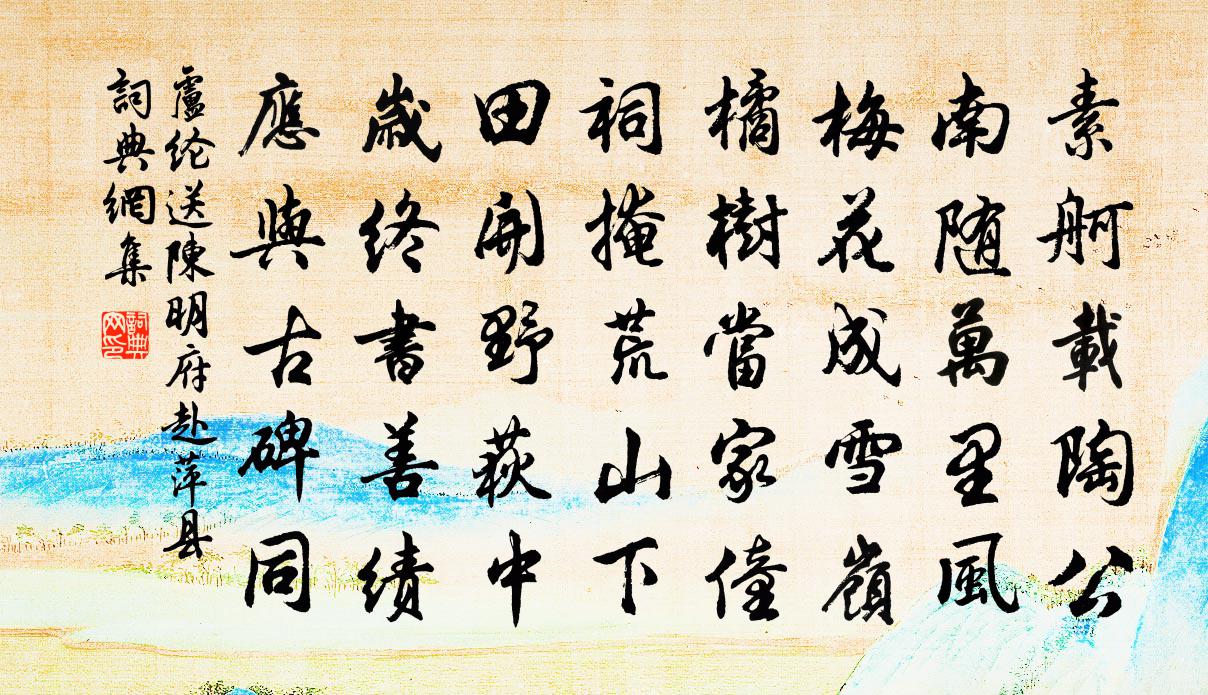 素舸載陶公
南随萬里風
梅花成雪嶺
橘樹當家僮
祠掩荒山下
田開野荻中
歲終書善績
應與古碑同
盧纶送陳明府赴萍县
詞典網集
詞典网印